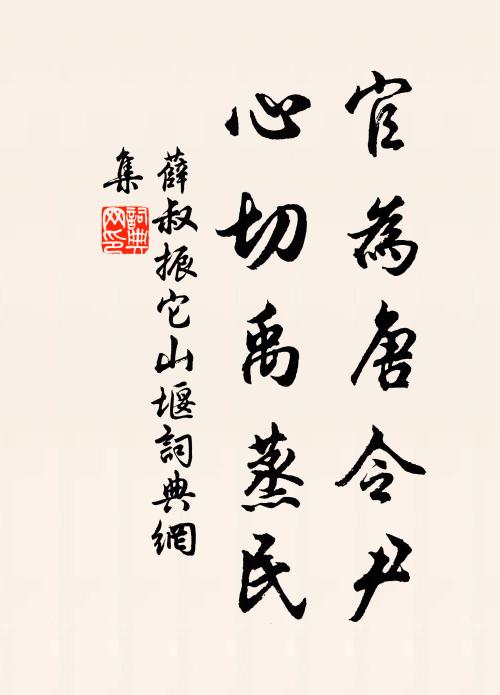 官為唐令尹
心切禹蒸民
薛叔振它山堰詞典網
集
詞典網印